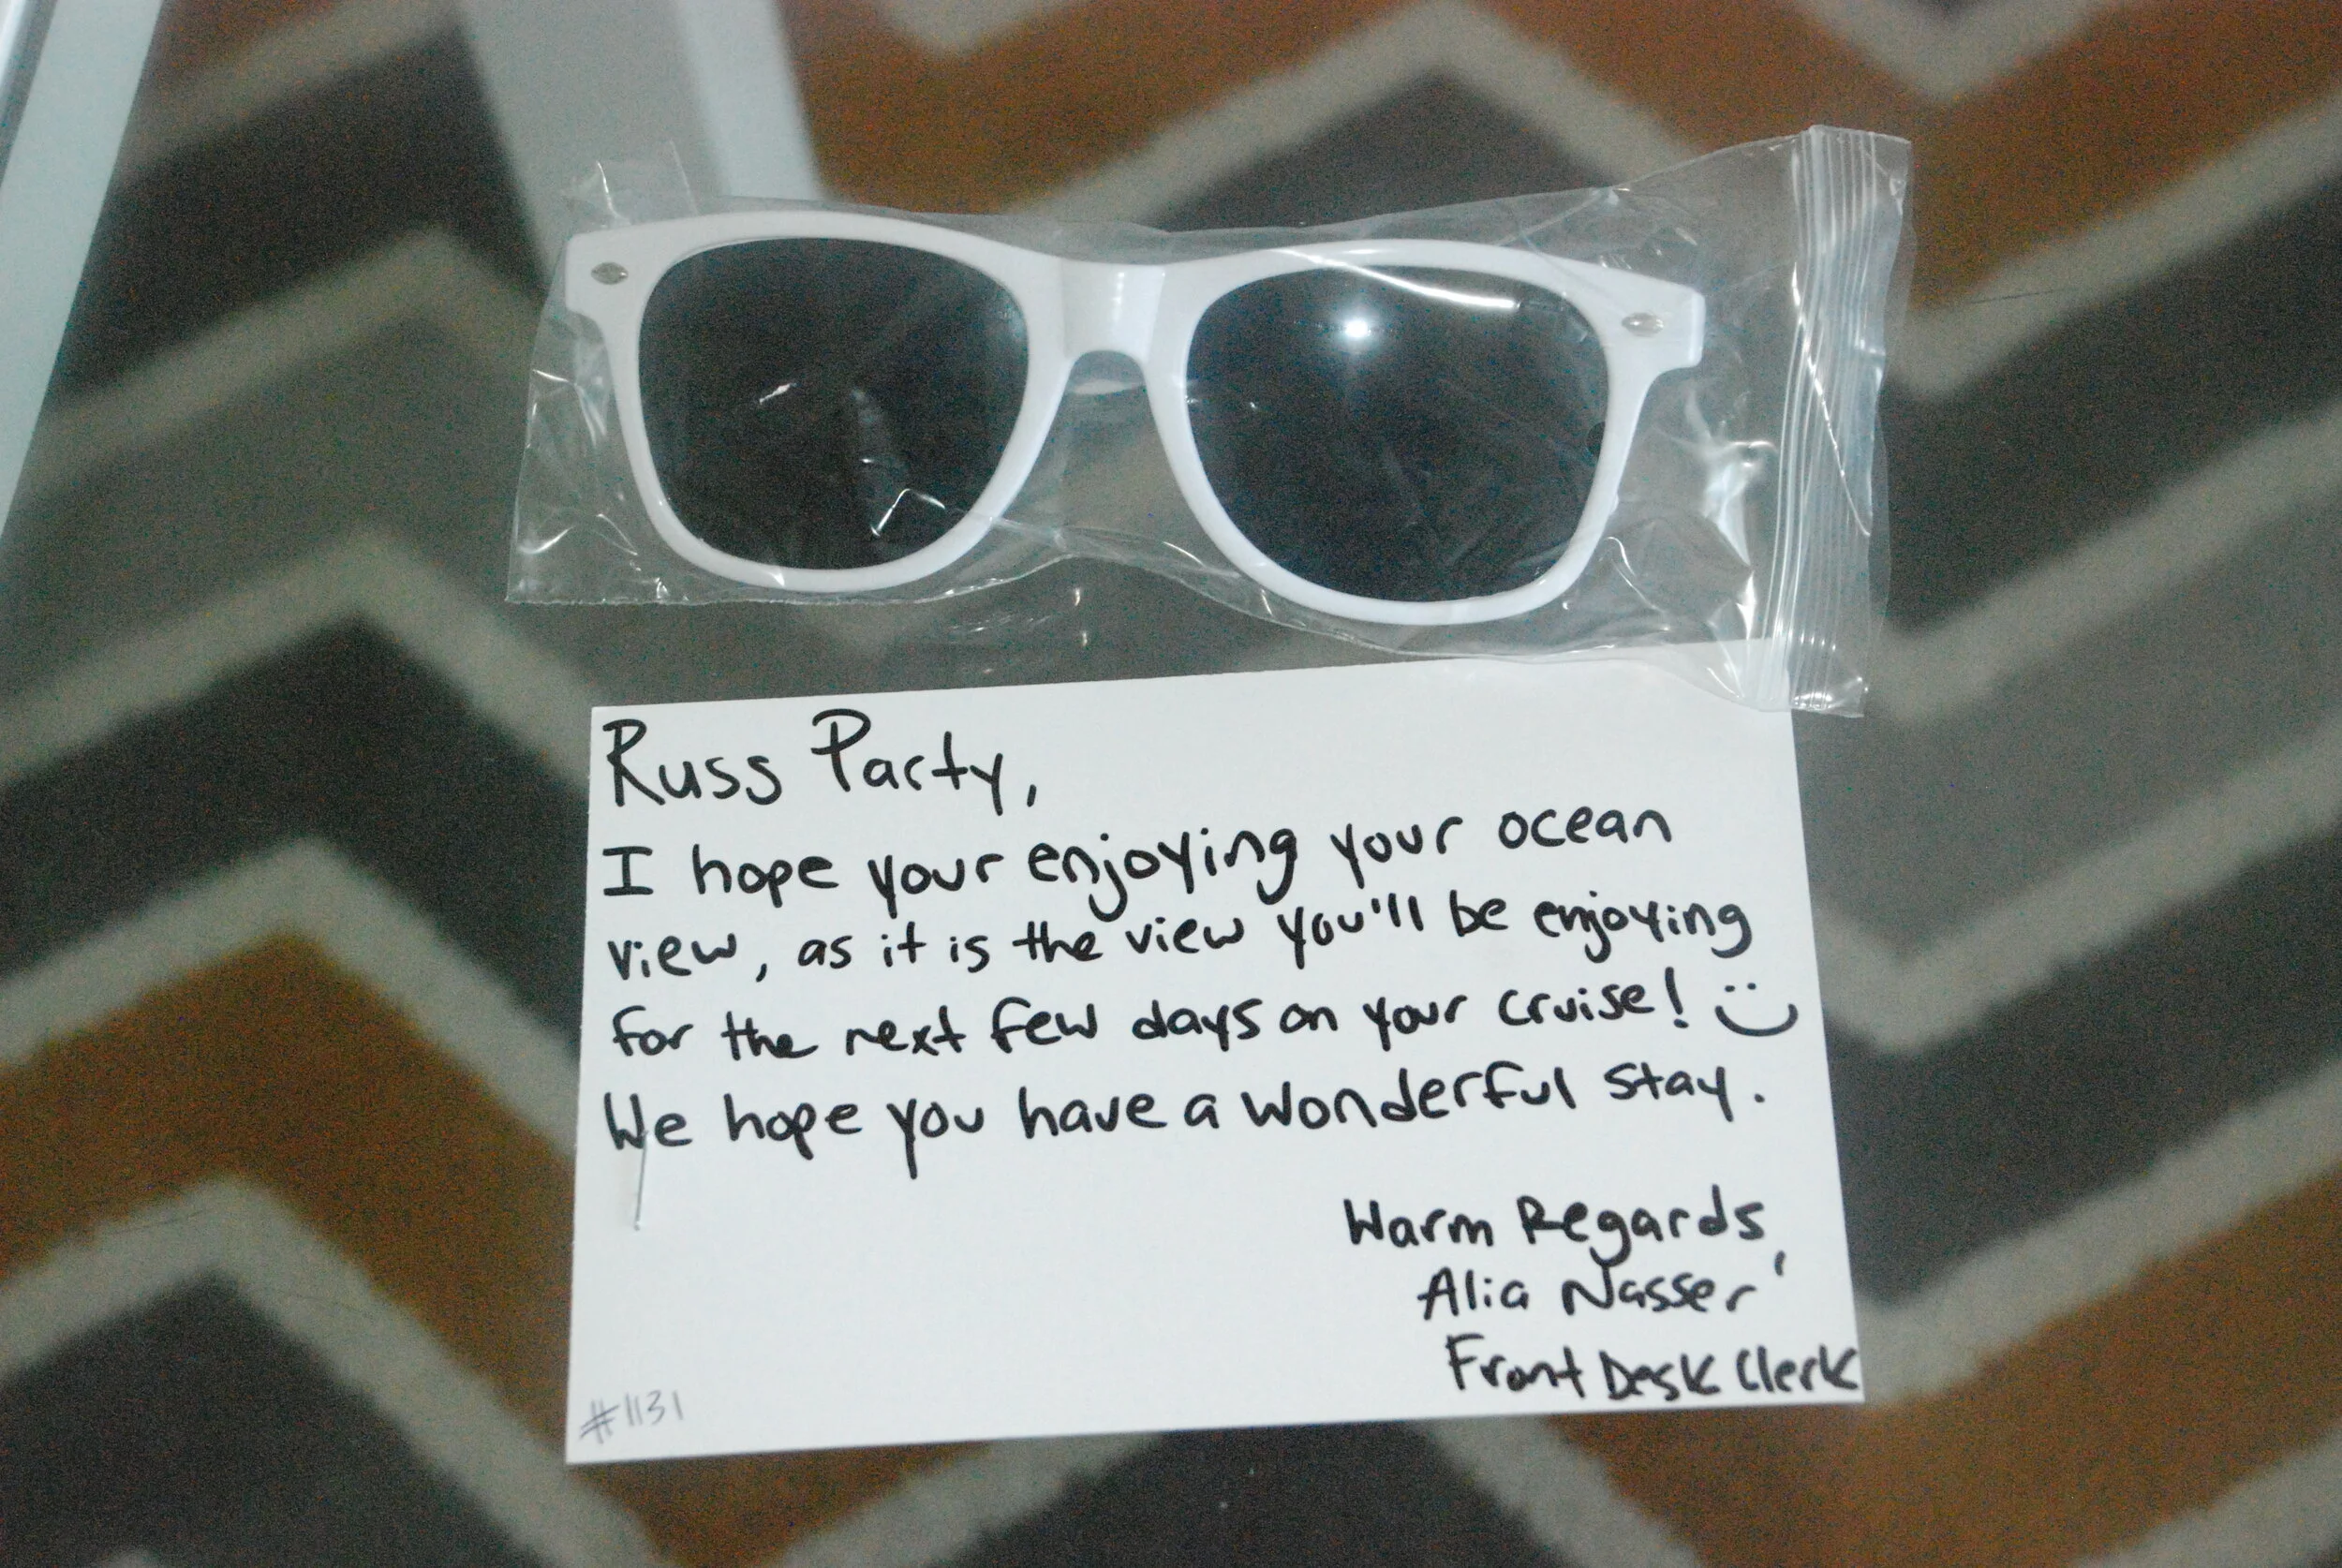 Russ Party,
I hope your enjoying your ocean
view, as it is the view you'll be enjoying
for the next few days on your cruise! :)
We hope you have a wonderful stay.
Warm Regards,
Alia Nasser
Front Desk Clerk
#1131